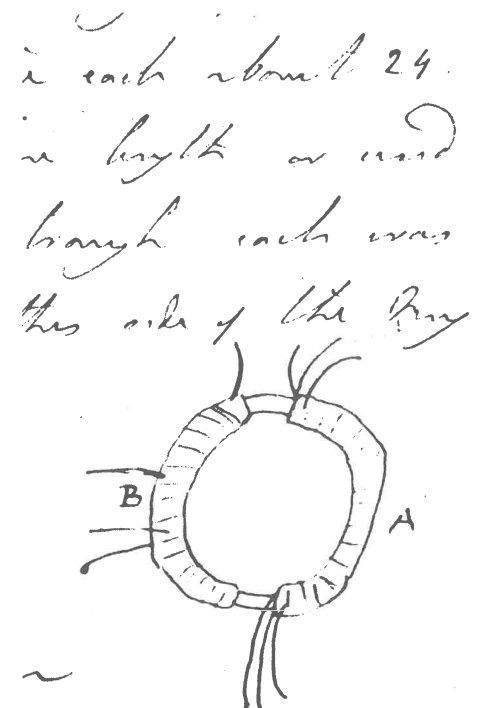 each about 24
in length or wind
through each was
this side of the Ring
B
A